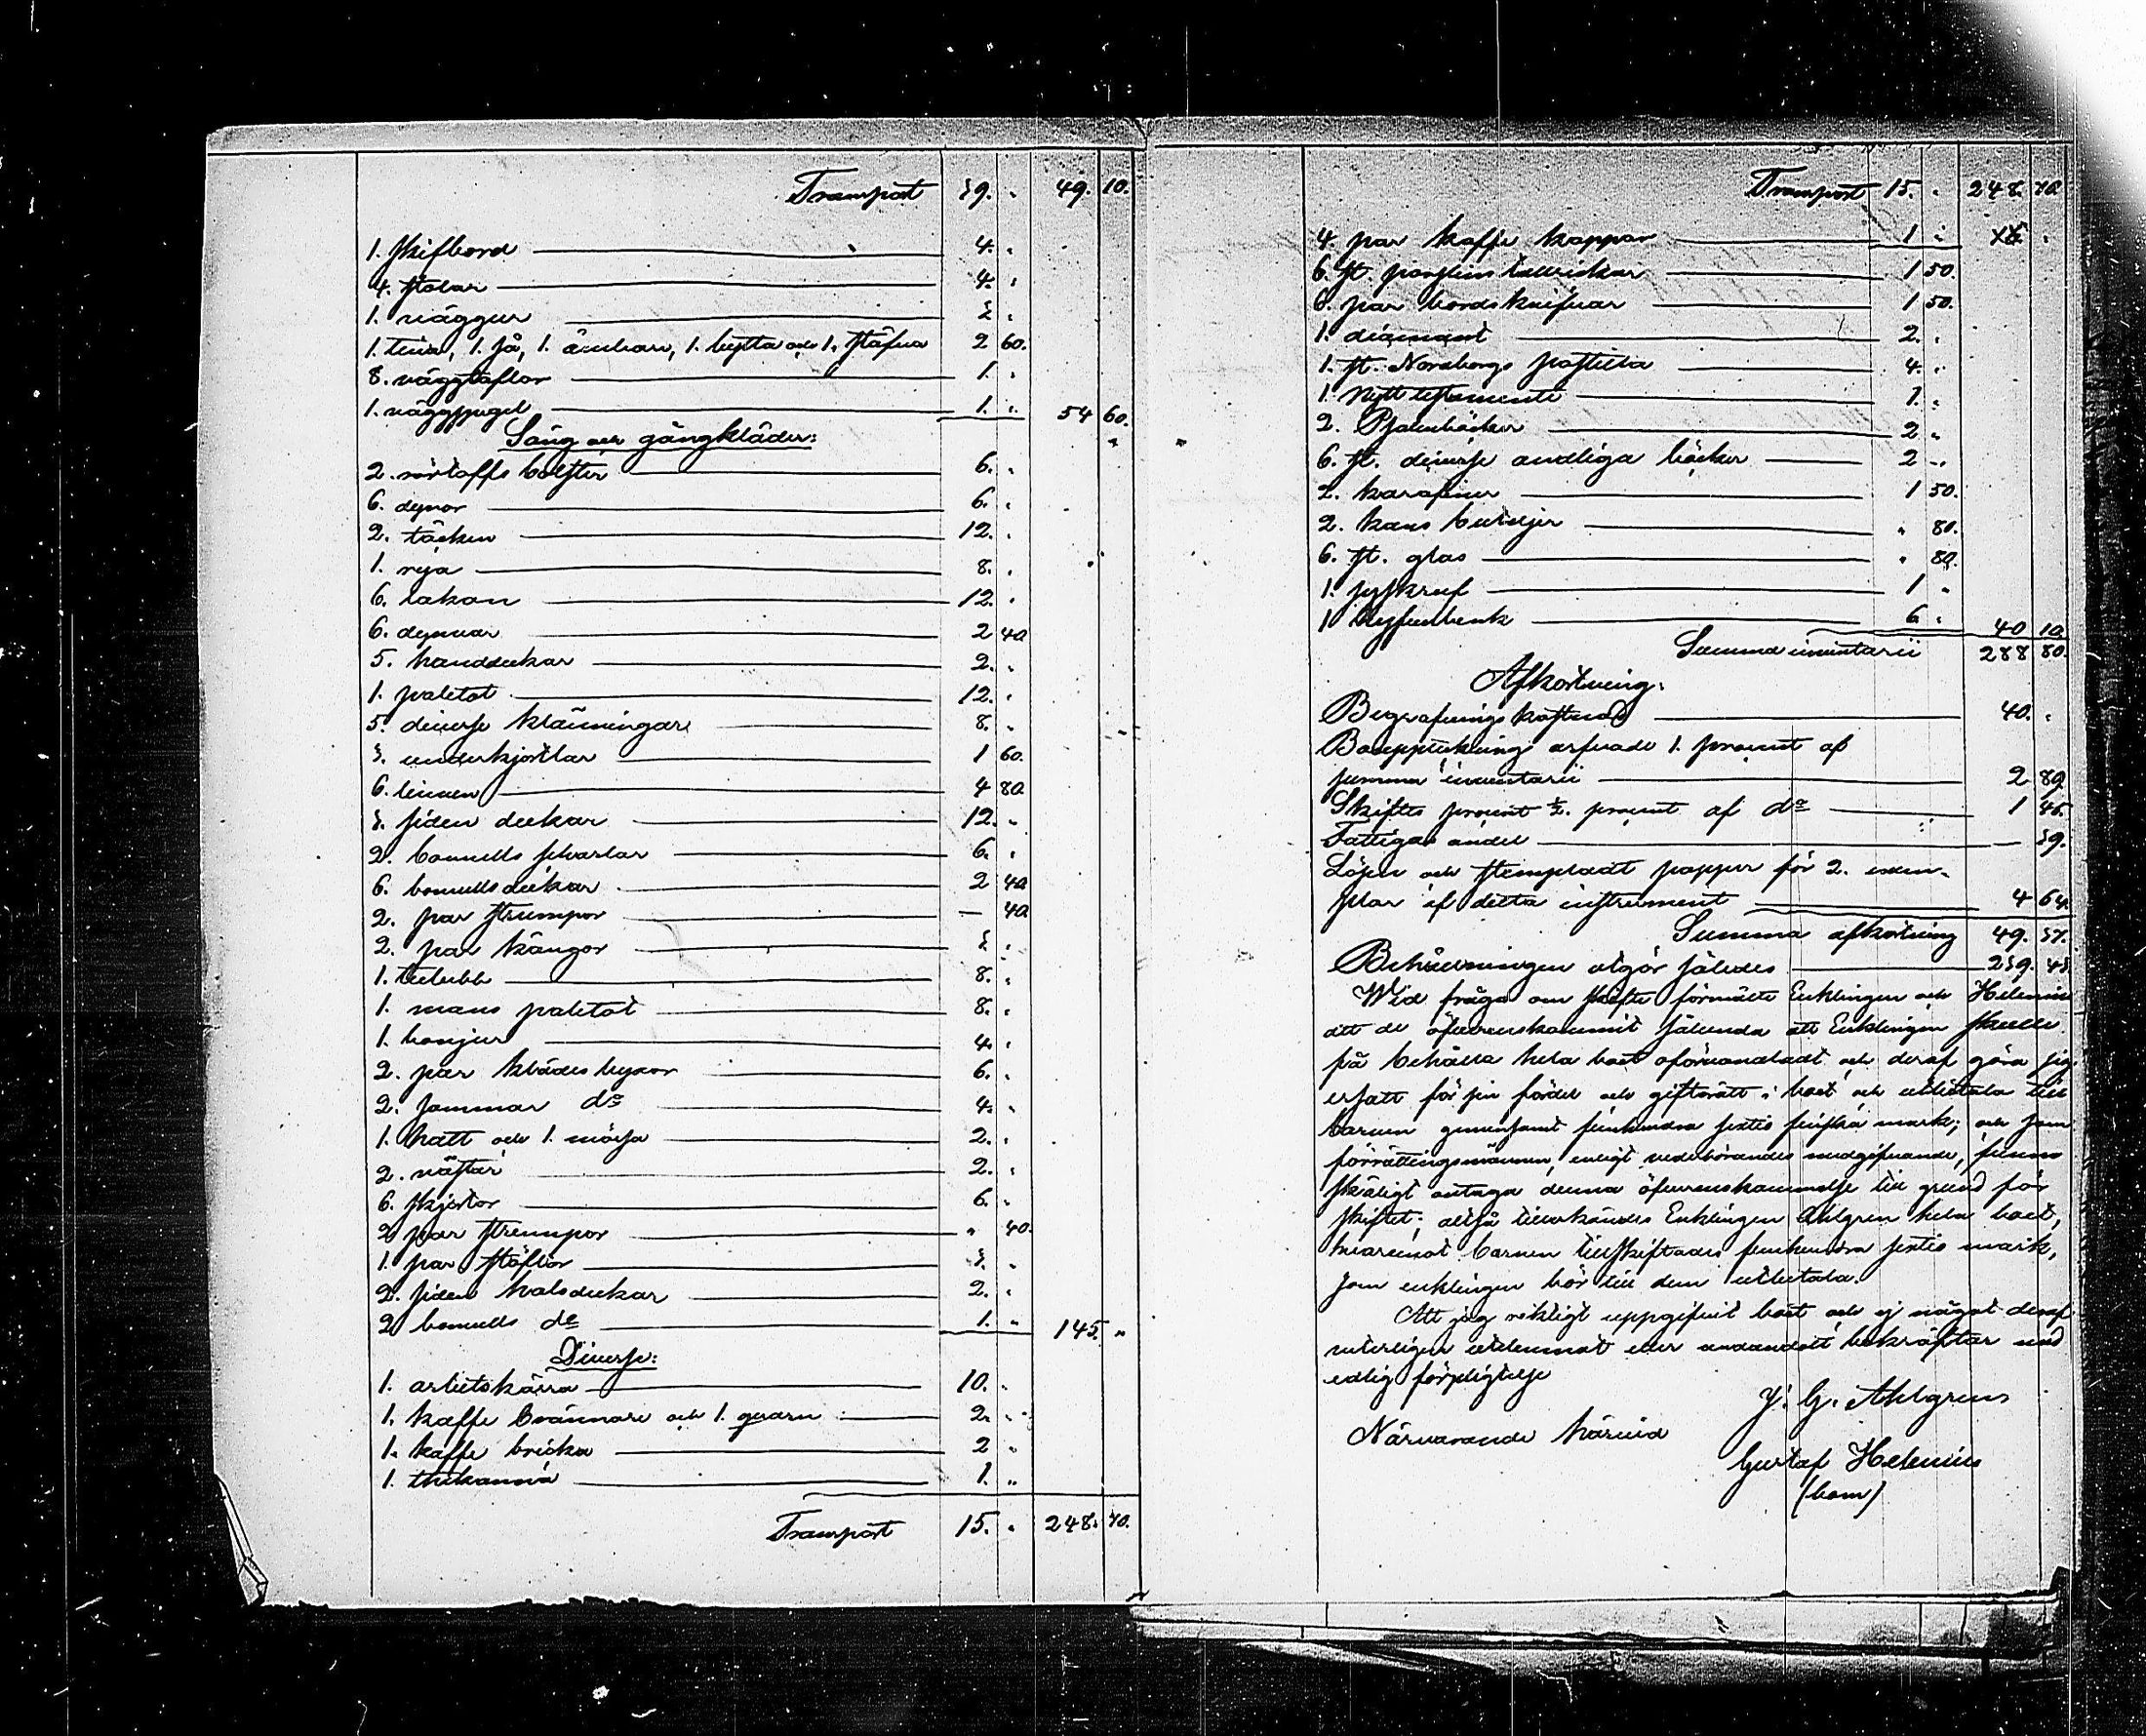 Transport 39. " 49. 10.
1. skifbord 4. "
4. stolar 4. "
1. väggur 3 "
1. tina, 1. så, 1. ämbare, 1. bytta och 1. stäfva 2 60.
8. väggtaflor 1. "
1. väggspegel 1. " 54 60.
Säng och gångkläder:
2. bolster 6. "
6. dynor 6. "
2. täcken 12. "
1. rya 8. "
6. lakan 12. "
6. dynvar 2 40
5. handdukar 2. "
1. paletot 12. "
5. diverse klädningar 8. "
3. underkjortlar 1 60.
6. linnen 4 80
3. siden dukar 12. "
2. bomulls scharlar 6. "
6. bomullsdukar 2 40
2. par strumpor — 40
2. par kängor 3 "
1. tulubb 8. "
1. mans paletot 8. "
1. bonjur 4. "
2. par klädes byxor 6. "
2. sommar do 4. "
1. hatt och 1. mössa 2. "
2. västar 2. "
6. skjortor 6. "
2 par strumpor " 40.
1. par stöflor 3. "
2. siden halsdukar 2. "
2 bomulls do 1. " 145. "
Diverse:
1. arbetskärra 10. "
1. kaffe brännare och 1. qvarn 2. "
1. kaffe bricka 2 "
1. thekanna 1. "
Transport 15. " 248. 70.
Transport 15. " 248. 70
4. par kaffe koppar 1 "
6. st. porslins tallrickar 1 50.
6. par bordsknifvar 1 50.
1. diamant 2. "
1. st. Norsborgs postilla 4. "
1. Nytt testamente 1. "
2. Psalmböcker 2 "
6. st. diverse andliga böcker 2 "
2. karafiner 1 50.
2. hans buteljer " 80.
6. st. glas " 80.
1. syskruf 1 "
1 hyfvelbenk 6 " 40 10.
Summa inventarii 288 80.
Afkortning:
Begrafningskostnad 40. "
Bouppteknings arfvode 1. procent af
summa inventarii 2 89
Skiftes procent ½. procent af do 1 45.
Fattigas andel — 39.
Lösen och stempladt papper för 2. exem-
plar af detta instrument 4 64.
Summa afkortning 49. 37.
Behållningen utgör således 239. 43
Wid fråga om skifte förmälte Enklingen och Helenius
att de öfverenskommit sålunda att Enklingen skulle
få behålla hela boet oförvandladt och deraf göra sig
ersatt för sin fördel och giftorätt i boet och utbetala till
barnen gemensamt femhundra sextio finska mark; och som
förrättningsmännen, enligt vederbörandes medgifvande, funno
skäligt antaga denna öfverenskommelse till grund för
skiftet; altså tillerkändes Enklingen Ahlgren hela boet,
hvaremot barnen tillskiftades femhundra sextio mark,
som enklingen bör till dem utbetala.
Att jag riktigt uppgifvit boet och ej något deraf
veterligen utelemnat eller undandolt bekräftar med
edlig förpligtelse
J. G. Ahlgren
Närvarande härvid
Gustaf Helenius
(bom)